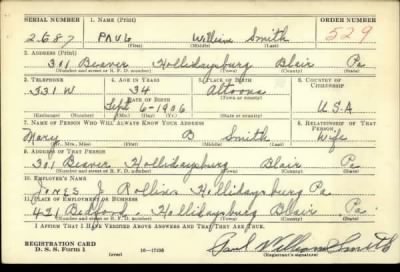 SERIAL NUMBER 1. NAME (Print) ORDER NUMBER
2687 PAUL William Smith 529
(First) (Middle) (Last)
2. ADDRESS (Print)
301 Beaver Hollidaysburg Blair Pa
(Number and street or R. F. D. number) (Town) (County) (State)
3. TELEPHONE 4. AGE IN YEARS 5. PLACE OF BIRTH 6. COUNTRY OF CITIZENSHIP
331W 34 Altoona
DATE OF BIRTH (Town or county)
Sept 6-1906 Pa USA
(Exchange) (Number) (Mo.) (Day) (Yr.) (State or country)
7. NAME OF PERSON WHO WILL ALWAYS KNOW YOUR ADDRESS 8. RELATIONSHIP OF THAT PERSON
Mary B Smith Wife
(Mr., Mrs., Miss) (First) (Middle) (Last)
9. ADDRESS OF THAT PERSON
301 Beaver Hollidaysburg Blair Pa
(Number and street or R. F. D. number) (Town) (County) (State)
10. EMPLOYER'S NAME
J Rollins Hollidaysburg Pa
11. PLACE OF EMPLOYMENT OR BUSINESS
421 Bedford Hollidaysburg Blair Pa
(Number and street or R. F. D. number) (Town) (County) (State)
I AFFIRM THAT I HAVE VERIFIED ABOVE ANSWERS AND THAT THEY ARE TRUE.
REGISTRATION CARD
D. S. S. Form 1 (over) Paul William Smith
(Registrant's signature)